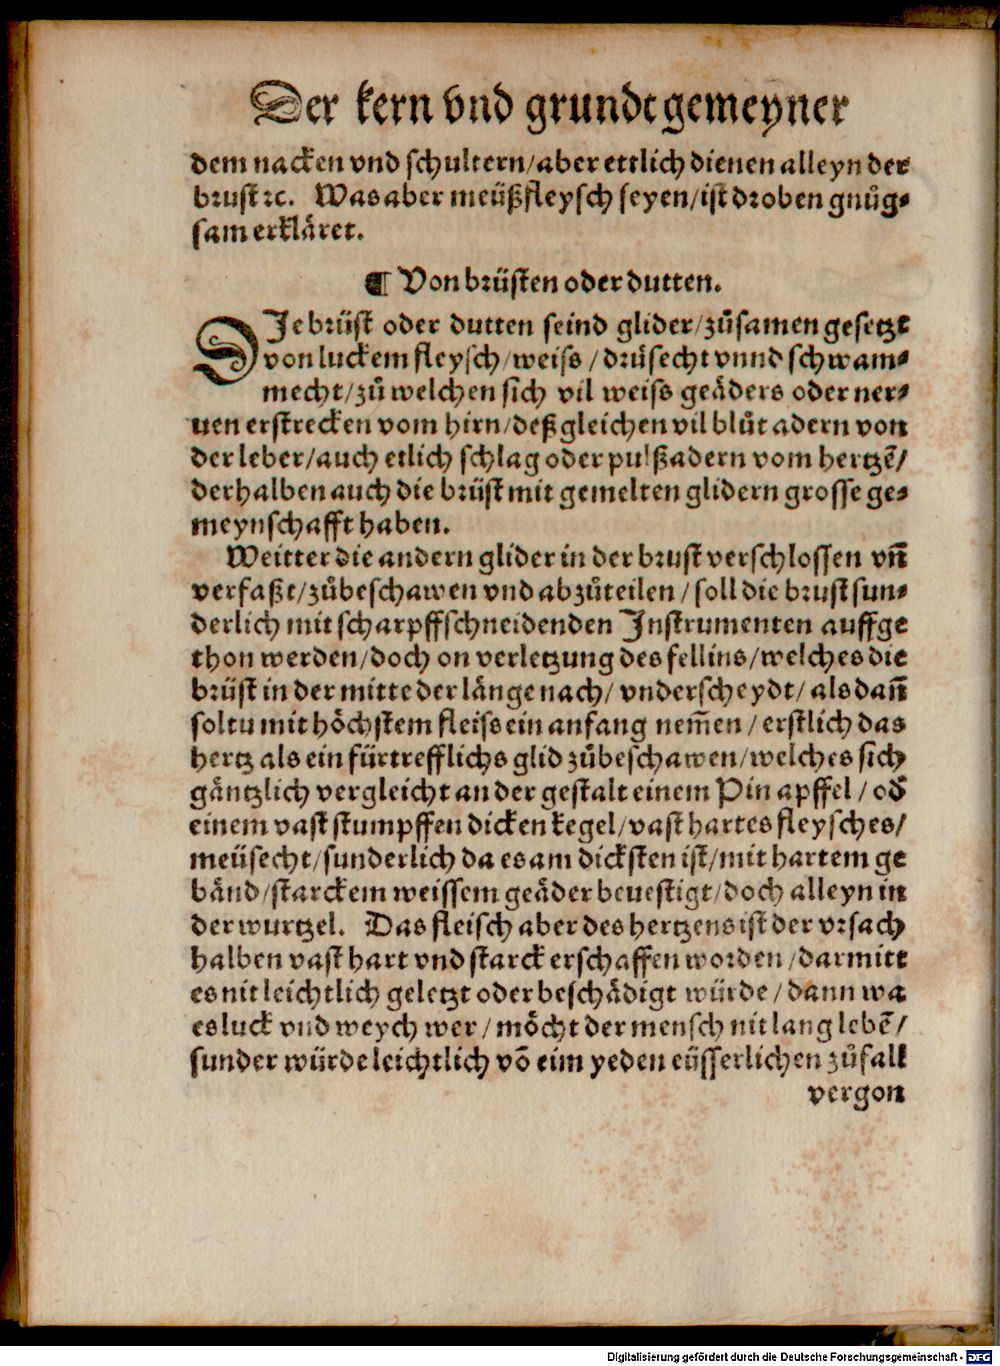 Der kern vnd grundt gemeyner
dem nacken vnd schultern/aber ettlich dienen alleyn der
brust ꝛc. Was aber meüßfleysch seyen/ist droben gnůg⸗
sam erkläret.
¶ Von brüsten oder dutten.
DIe brüst oder dutten seind glider/zůsamen gesetzt
von luckem fleysch/weiss/drüsecht vnnd schwam⸗
mecht/zů welchen sich vil weiss geäders oder ner⸗
uen erstrecken vom hirn/deßgleichen vil blůt adern von
der leber/auch etlich schlag oder pulßadern vom hertzē/
derhalben auch die brüst mit gemelten glidern grosse ge⸗
meynschafft haben.
Weitter die andern glider in der brust verschlossen vn̄
verfaßt/zůbeschawen vnd abzůteilen/soll die brust sun⸗
derlich mit scharpffschneidenden Instrumenten auffge
thon werden/doch on verletzung des fellins/welches die
brüst in der mitte der länge nach/vnderscheydt/als dan̄
soltu mit höchstem fleiss ein anfang nem̄en/erstlich das
hertz als ein fürtrefflichs glid zůbeschawen/welches sich
gäntzlich vergleicht an der gestalt einem Pin apffel/od̕
einem vast stumpffen dicken kegel/vast hartes fleysches/
meüsecht/sunderlich da es am dicksten ist/mit hartem ge
bänd/starckem weissem geäder beuestigt/doch alleyn in
der wurtzel. Das fleisch aber des hertzens ist der vrsach
halben vast hart vnd starck erschaffen worden/darmitt
es nit leichtlich geletzt oder beschädigt würde/dann wa
es luck vnd weych wer/möcht der mensch nit lang lebē/
sunder würde leichtlich vō eim yeden eüsserlichen zůfall
vergon
Digitalisierung gefördert durch die Deutsche Forschungsgemeinschaft - DFG